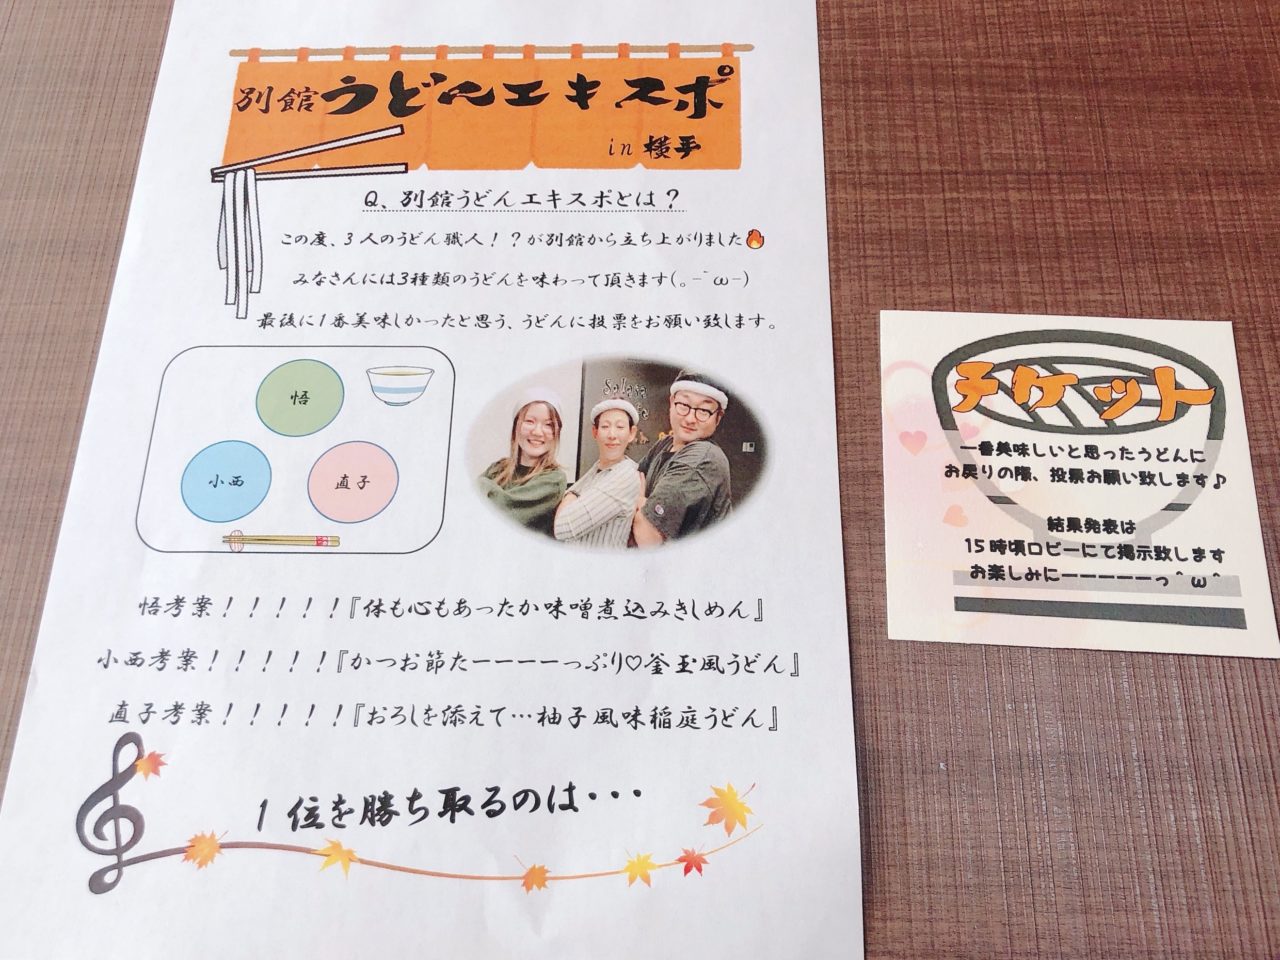 別館うどんエキスポ
in 横手
Q、別館うどんエキスポとは？
この度、3人のうどん職人！？が別館から立ち上がりました🔥
みなさんには3種類のうどんを味わって頂きます(。-`ω-)
最後に1番美味しかったと思う、うどんに投票をお願い致します。
悟
小西
直子
悟考案！！！！！『体も心もあったか味噌煮込みきしめん』
小西考案！！！！！『かつお節たーーーーっぷり♡釜玉風うどん』
直子考案！！！！！『おろしを添えて…柚子風味稲庭うどん』
1位を勝ち取るのは・・・
チケット
一番美味しいと思ったうどんに
お戻りの際、投票お願い致します♪
結果発表は
15時頃ロビーにて掲示致します
お楽しみにーーーーーっ＾ω＾